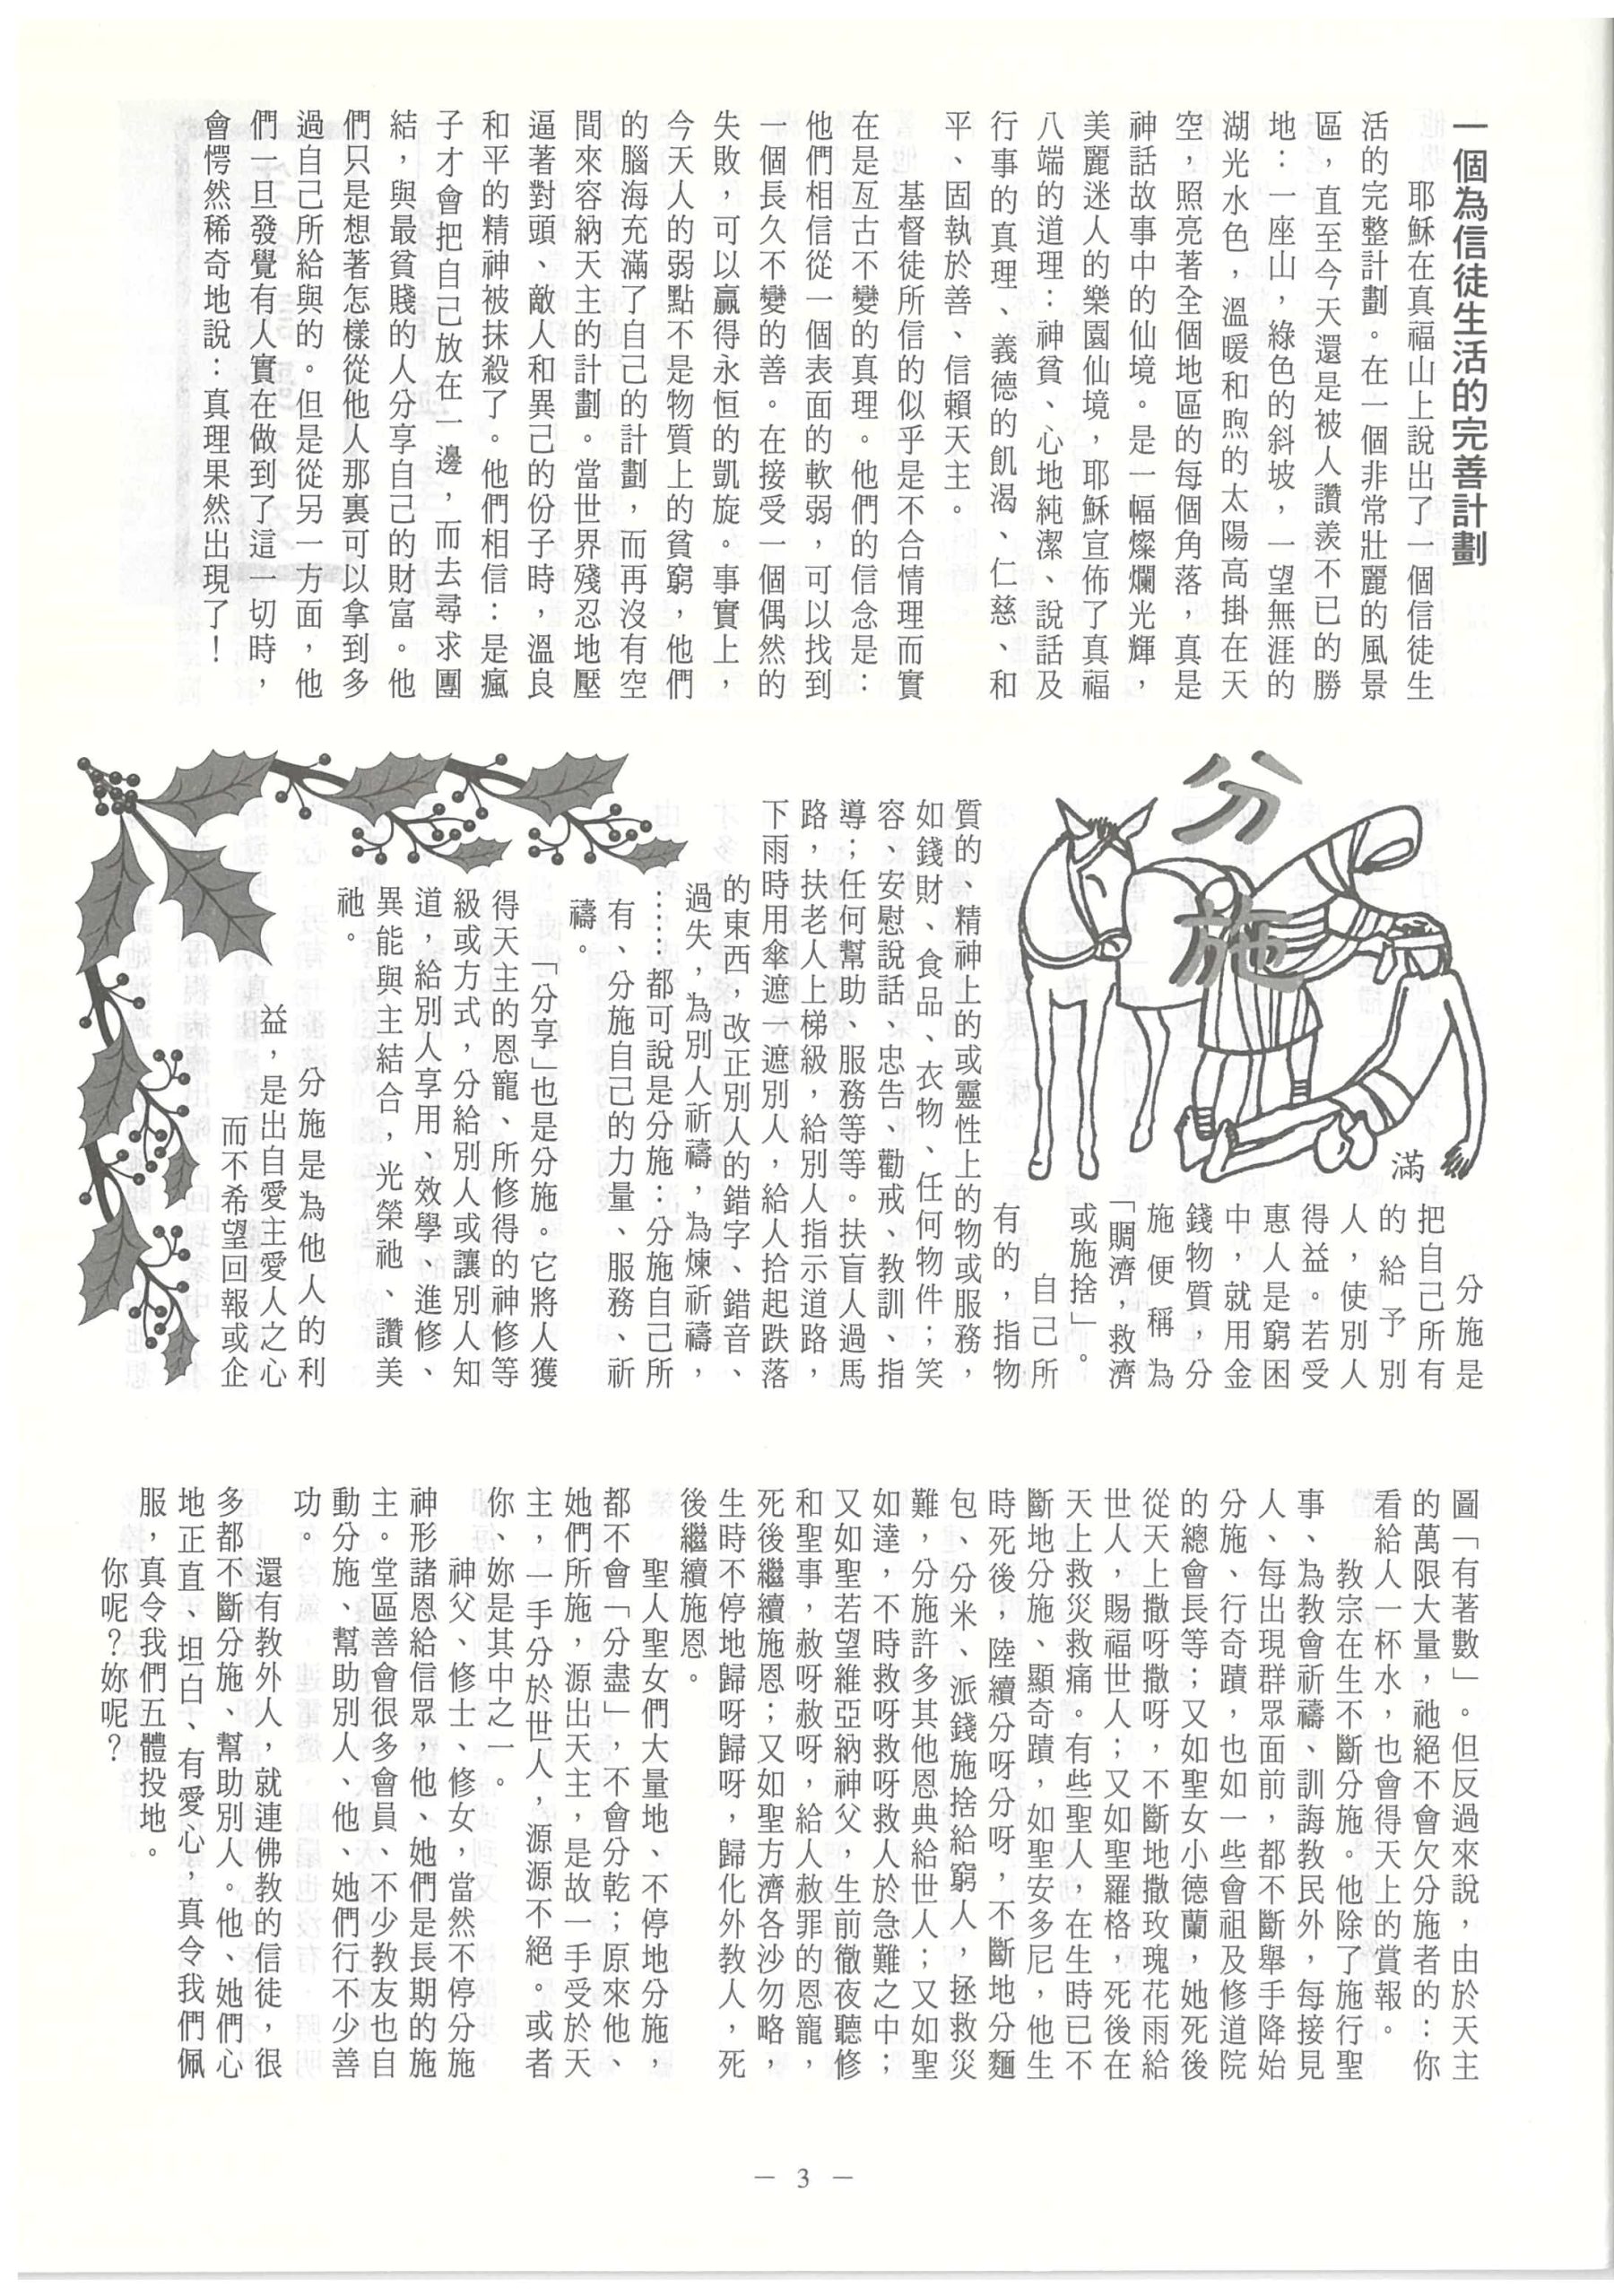 一個為信徒生活的完善計劃
耶穌在真福山上說出了一個信徒生
活的完整計劃。在一個非常壯麗的風景
區，直至今天還是被人讚羨不已的勝
地：一座山，綠色的斜坡，一望無涯的
湖光水色，溫暖和煦的太陽高掛在天
空，照亮著全個地區的每個角落，真是
神話故事中的仙境。是一幅燦爛光輝，
美麗迷人的樂園仙境，耶穌宣佈了真福
八端的道理：神貧、心地純潔、說話及
行事的真理、義德的飢渴、仁慈、和
平、固執於善、信賴天主。
基督徒所信的似乎是不合情理而實
在是亙古不變的真理。他們的信念是：
他們相信從一個表面的軟弱，可以找到
一個長久不變的善。在接受一個偶然的
失敗，可以贏得永恒的凱旋。事實上，
今天人的弱點不是物質上的貧窮，他們
的腦海充滿了自己的計劃，而再沒有空
間來容納天主的計劃。當世界殘忍地壓
逼著對頭、敵人和異己的份子時，溫良
和平的精神被抹殺了。他們相信：是瘋
子才會把自己放在一邊，而去尋求團
結，與最貧賤的人分享自己的財富。他
們只是想著怎樣從他人那裏可以拿到多
過自己所給與的。但是從另一方面，他
們一旦發覺有人實在做到了這一切時，
會愕然稀奇地說：真理果然出現了！
分施
滿
分施是
把自己所有
的給予別
人，使別人
得益。若受
惠人是窮困
中，就用金
錢物質，分
施便稱為
「賙濟，救濟
或施捨」。
自己所
有的，指物
質的、精神上的或靈性上的物或服務，
如錢財、食品、衣物、任何物件；笑
容、安慰說話、忠告、勸戒、教訓、指
導；任何幫助、服務等等。扶盲人過馬
路，扶老人上梯級，給別人指示道路，
下雨時用傘遮一遮別人，給人拾起跌落
的東西，改正別人的錯字、錯音、
過失，為別人祈禱，為煉祈禱，
……都可說是分施：分施自己所
有、分施自己的力量、服務、祈
禱。
「分享」也是分施。它將人獲
得天主的恩寵、所修得的神修等
級或方式，分給別人或讓別人知
道，給別人享用、效學、進修、
異能與主結合，光榮祂、讚美
祂。
分施是為他人的利
益，是出自愛主愛人之心
而不希望回報或企
圖「有著數」。但反過來說，由於天主
的萬限大量，祂絕不會欠分施者的：你
看給人一杯水，也會得天上的賞報。
教宗在生不斷分施。他除了施行聖
事、為教會祈禱、訓誨教民外，每接見
人、每出現群眾面前，都不斷舉手降始
分施、行奇蹟，也如一些會祖及修道院
的總會長等；又如聖女小德蘭，她死後
從天上撒呀撒呀，不斷地撒玫瑰花雨給
世人，賜福世人；又如聖羅格，死後在
天上救災救痛。有些聖人，在生時已不
斷地分施、顯奇蹟，如聖安多尼，他生
時死後，陸續分呀分呀，不斷地分麵
包、分米、派錢施捨給窮人，拯救災
難，分施許多其他恩典給世人；又如聖
如達，不時救呀救呀救人於急難之中；
又如聖若望維亞納神父，生前徹夜聽修
和聖事，赦呀赦呀，給人赦罪的恩寵，
死後繼續施恩；又如聖方濟各沙勿略，
生時不停地歸呀歸呀，歸化外教人，死
後繼續施恩。
聖人聖女們大量地、不停地分施，
都不會「分盡」，不會分乾；原來他、
她們所施，源出天主，是故一手受於天
主，一手分於世人，源源不絕。或者
你、妳是其中之一。
神父、修士、修女，當然不停分施
神形諸恩給信眾，他、她們是長期的施
主。堂區善會很多會員、不少教友也自
動分施、幫助別人、他、她們行不少善
功。
還有教外人，就連佛教的信徒，很
多都不斷分施、幫助別人。他、她們心
地正直、坦白、有愛心，真令我們佩
服，真令我們五體投地。
你呢？妳呢？
— 3 —